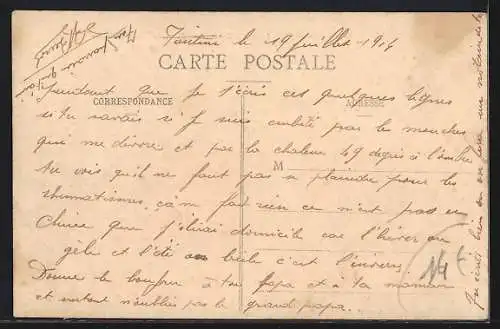 le 19 juillet 1914
CARTE POSTALE
pendant que je t'écris ces quelques lignes
CORRESPONDANCE
ADRESSE
si tu savais si je suis embêté par les mouches
qui me dévore et par la chaleur 49 degrés à l'ombre
M
tu vois qu'il ne faut pas se plaindre pour les
rhumatismes, ça ne fait rien ce n'est pas en
Chine que j'élirai domicile car l'hiver on
gèle et l'été on brûle c'est l'envers.
Donne le bonjour à ton papa et à ta maman
et surtout n'oublie pas le grand papa..
14 €